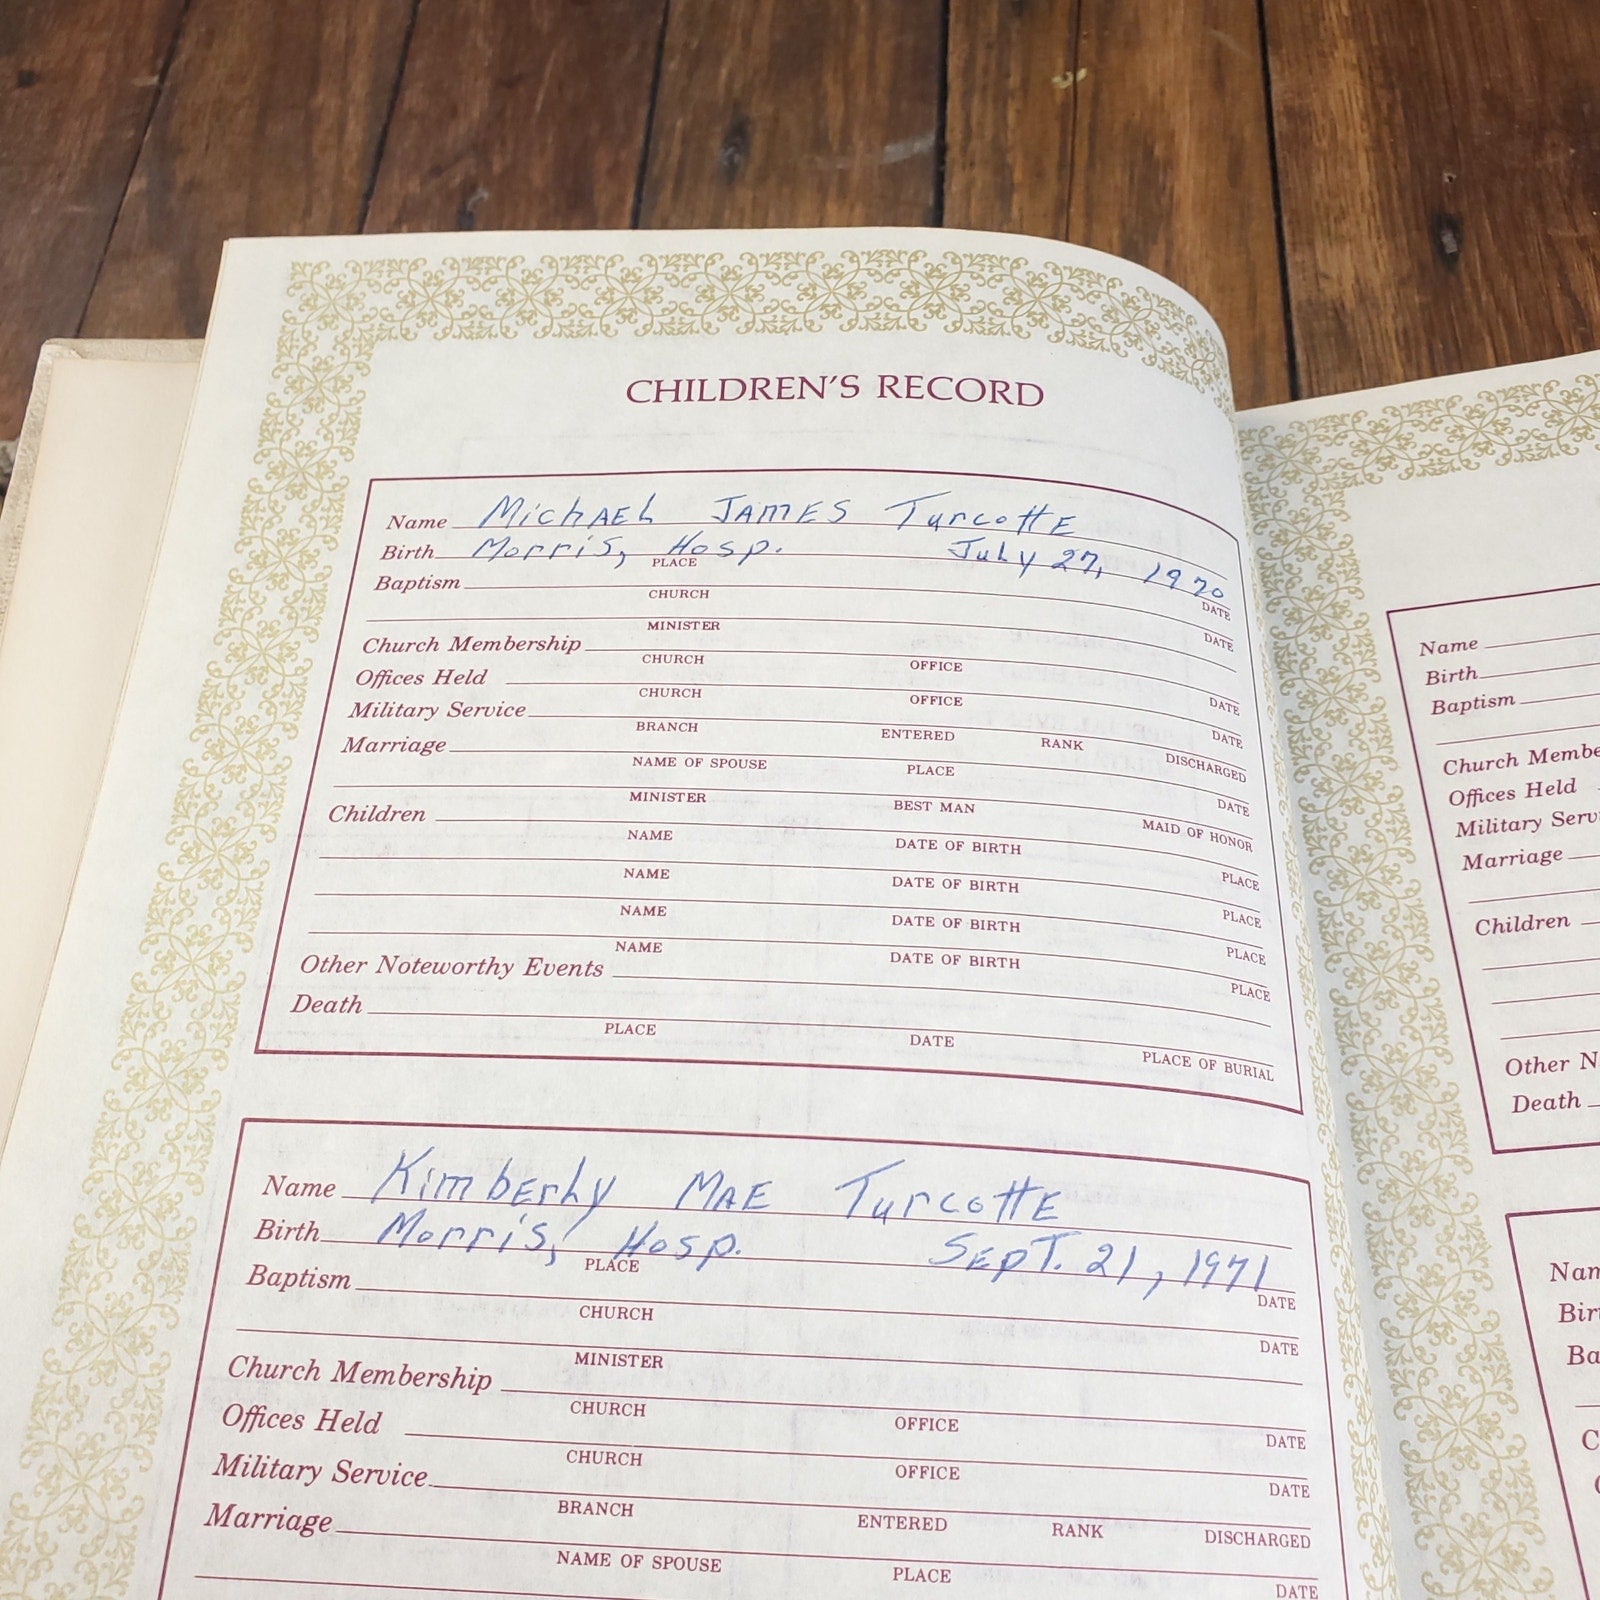 CHILDREN'S RECORD
Name Michael James Turcotte
Birth Morris, Hosp. July 27, 1970
PLACE DATE
Baptism
CHURCH DATE
MINISTER
Church Membership
CHURCH OFFICE DATE
Offices Held
CHURCH OFFICE DATE
Military Service
BRANCH ENTERED RANK DISCHARGED
Marriage
NAME OF SPOUSE PLACE DATE
MINISTER BEST MAN MAID OF HONOR
Children
NAME DATE OF BIRTH PLACE
NAME DATE OF BIRTH PLACE
NAME DATE OF BIRTH PLACE
NAME DATE OF BIRTH PLACE
Other Noteworthy Events
Death
PLACE DATE PLACE OF BURIAL
Name Kimberly Mae Turcotte
Birth Morris, Hosp. Sept. 21, 1971
PLACE DATE
Baptism
CHURCH DATE
MINISTER
Church Membership
CHURCH OFFICE DATE
Offices Held
CHURCH OFFICE DATE
Military Service
BRANCH ENTERED RANK DISCHARGED
Marriage
NAME OF SPOUSE PLACE DATE
Name
Birth
Baptism
Church Membe
Offices Held
Military Servi
Marriage
Children
Other N
Death
Nam
Bir
Ba
C